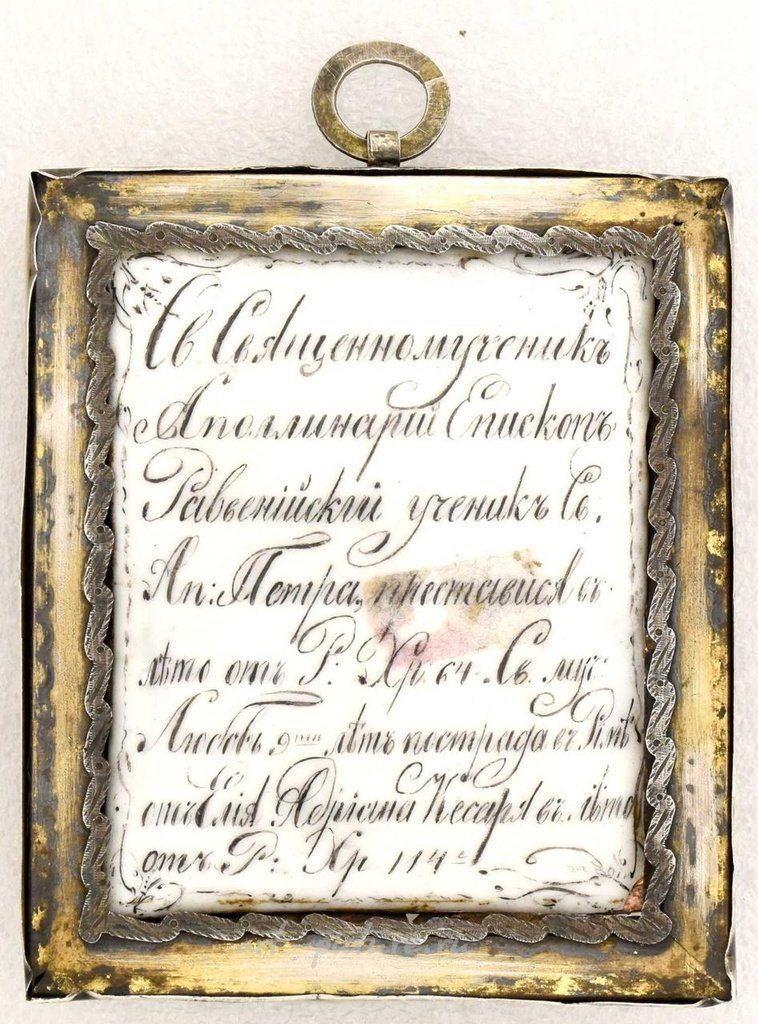 Св. Священномученикъ
Аполлинарій Епископъ
Равенійскій ученикъ Св.
Ап: Петра, преставися въ
лѣто отъ Р: Хр. 64. Св. муч:
Любовь 9ти лѣтъ пострада въ Римѣ
отъ Елія Адріана Кесаря въ лѣто
отъ Р: Хр 114е